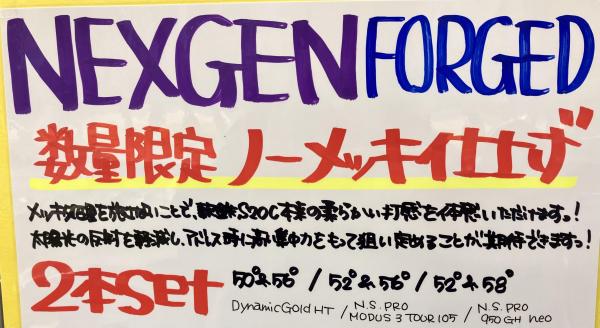 NEXGEN FORGED
数量限定 ノーメッキ仕上げ
メッキ処理を施さないことで、軟鉄S20C本来の柔らかい打感を体感いただけますっ!
太陽光の反射を軽減し、アドレス時に高い集中力をもって狙い定めることが期待できますっ!
2本set 50°&56° / 52°&56° / 52°&58°
DynamicGold HT / N.S.PRO MODUS3 TOUR105 / N.S.PRO 950GH neo